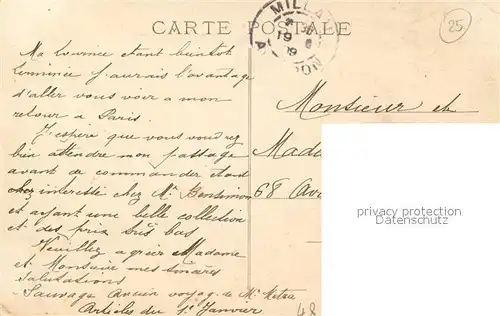 CARTE POSTALE
MILLAU
19
09
25
Ma tournée étant bientôt
terminée j'aurais l'avantage
d'aller vous voir a mon
retour a Paris.
J'espère que vous voudrez
bien attendre mon passage
avant de commander étant
chez intéressé chez Mr
et ayant une belle collection
et des prix très bas
Veuillez agréer Madame
et Monsieur mes sincères
salutations
Sauvage Ancien voyag. de Mr
Articles du 1er Janvier
Monsieur et
Mad
68 Av
privacy protection
Datenschutz
48